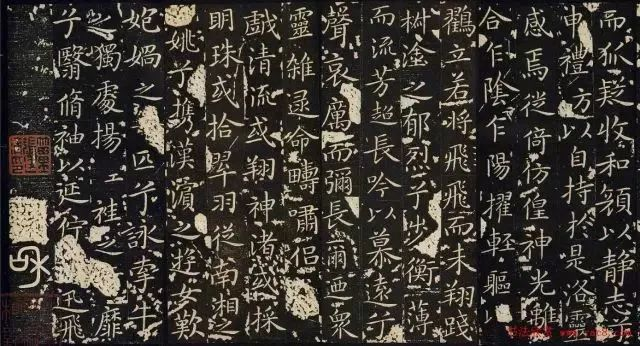 而狐疑收和顏以静志
申禮方以自持於是洛靈
感焉徙倚彷徨神光離
合乍陰乍陽擢輕軀以
鶴立若將飛飛而未翔踐
椒塗之郁烈兮步衡薄
而流芳超長吟以慕遠兮
聲哀厲而彌長爾迺衆
靈雜遝命疇嘯侶
戲清流或翔神渚或採
明珠或拾翠羽從南湘之
姚兮攜漢濱之遊女歎
妃媧之匹兮詠牽牛
之獨處揚袿之靡
兮翳脩袖以延佇迅飛